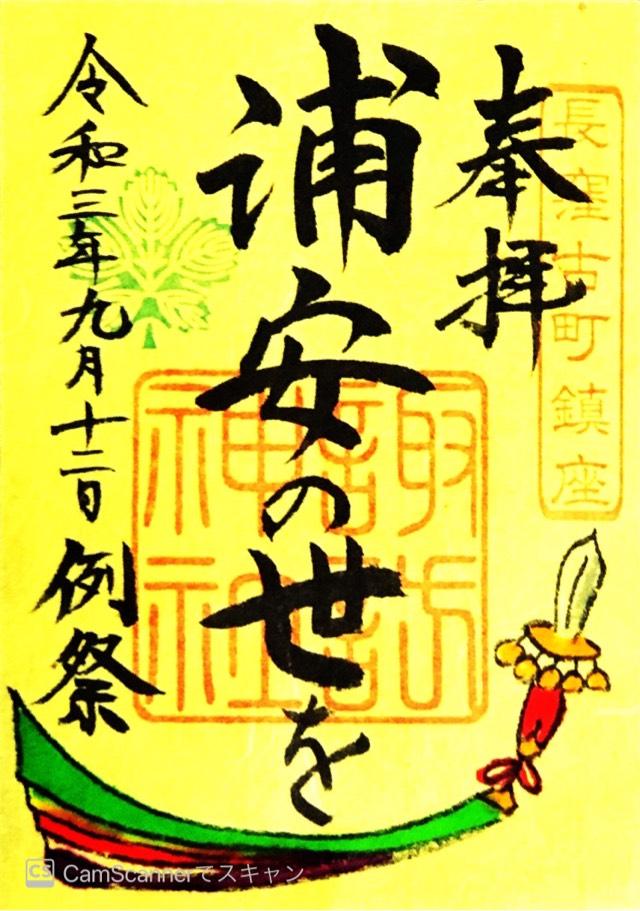 長窪古町鎮座
奉拝
浦安の世を
諏訪
神社
令和三年九月十二日 例祭
CS CamScannerでスキャン